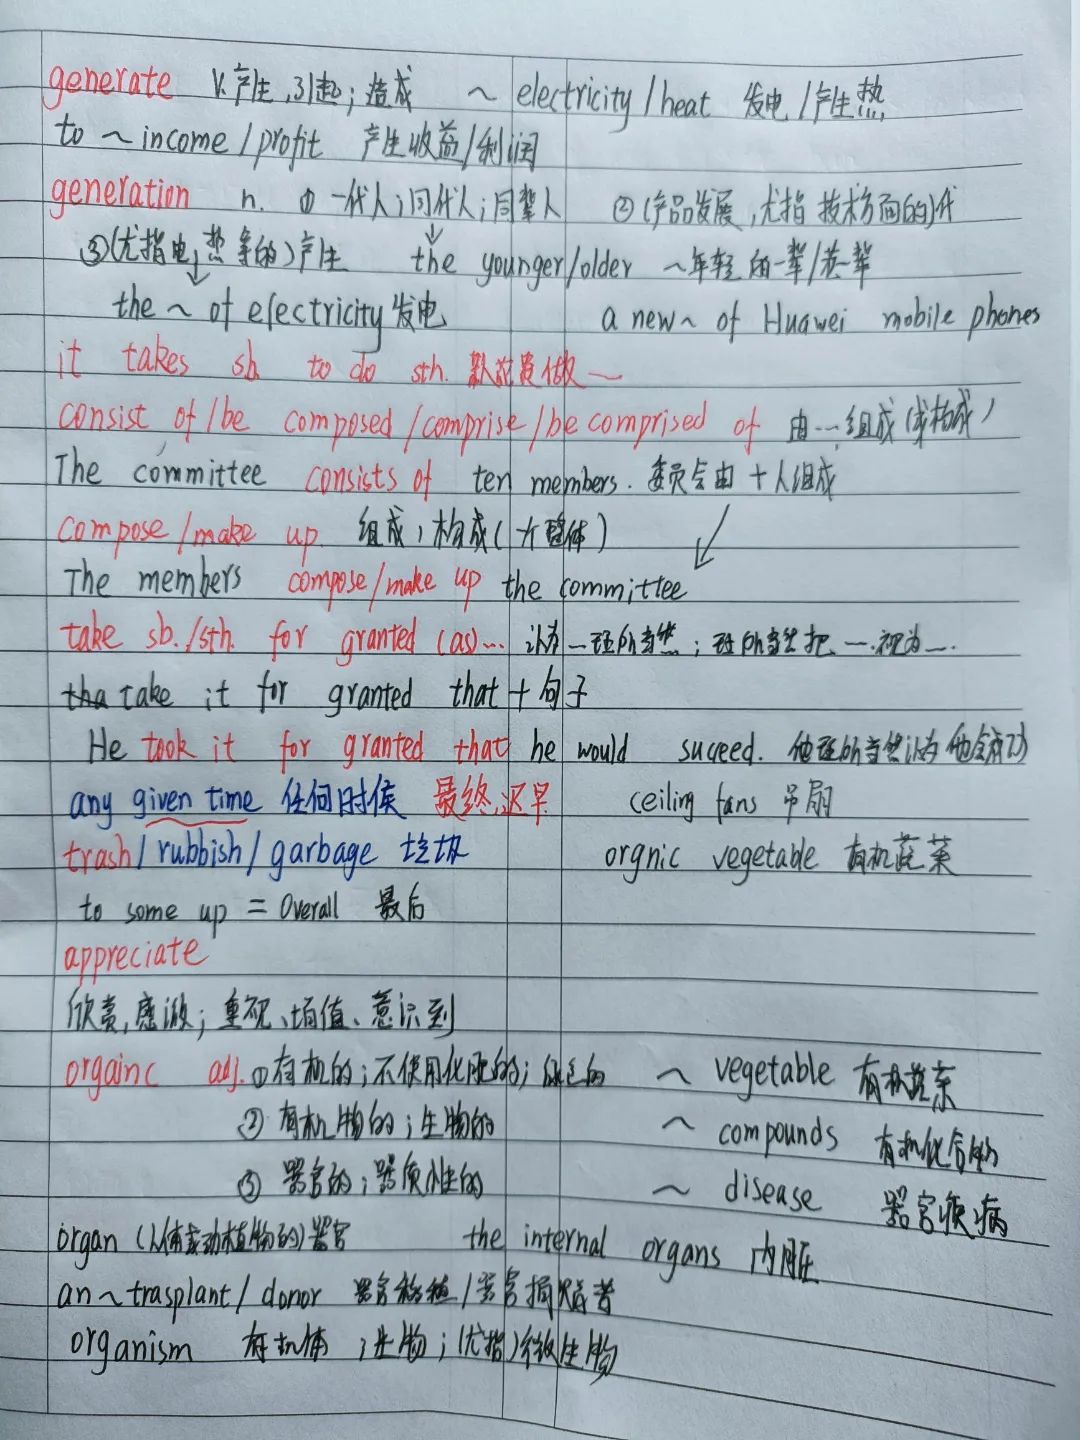 generate v.产生,引起;造成 ~ electricity/heat 发电/产生热
to ~ income/profit 产生收益/利润
generation n. ① 一代人;同代人;同辈人 ②(产品发展,尤指技术方面的)代
③(尤指电,热等的)产生 the younger/older ~年轻的一辈/老一辈
the ~ of electricity 发电 a new ~ of Huawei mobile phones
it takes sb. to do sth. 做
consist of/be composed/comprise/be comprised of 由…组成(或构成)
The committee consists of ten members. 委员会由十人组成
compose/make up. 组成,构成(整体)
The members compose/make up the committee
take sb./sth. for granted (as)... 认为…理所当然;理所当然把…视为…
tha take it for granted that + 句子
He took it for granted that he would suceed. 他理所当然认为他会成功
any given time 任何时侯 最终,迟早 ceiling fans 吊扇
trash/rubbish/garbage 垃圾 orgnic vegetable 有机蔬菜
to some up = Overall 最后
appreciate
欣赏,感激;重视、增值、意识到
organic adj. ①有机的;不使用化肥的;绿色的 ~ vegetable 有机蔬菜
② 有机物的;生物的 ~ compounds 有机化合物
③ 器官的;器质性的 ~ disease 器官疾病
organ (人体或动植物的)器官 the internal organs 内脏
an ~ trasplant/donor 器官移植/器官捐赠者
organism 有机体;生物;(尤指)微生物